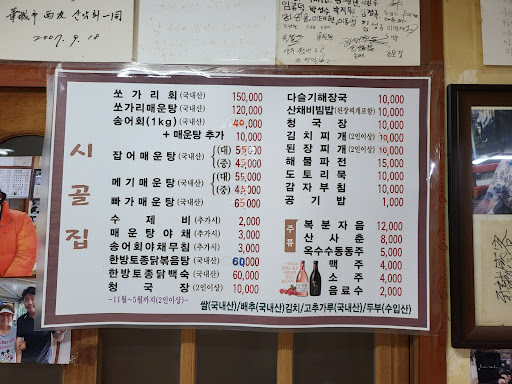 2009.9.18
시골집
쏘가리회(국내산) 150,000
쏘가리매운탕(국내산) 120,000
송어회(1kg)(국내산) 40,000
+ 매운탕 추가 10,000
잡어매운탕(국내산) (대)
(중)
메기매운탕(국내산) (대)
(중)
빠가매운탕(국내산) 65,000
수제비(추가시) 2,000
매운탕야채(추가시) 3,000
송어회야채무침(추가시) 3,000
한방토종닭볶음탕(국내산) 60,000
한방토종닭백숙(국내산) 60,000
청국장(2인이상) 10,000
-11월~5월까지(2인이상)-
다슬기해장국 10,000
산채비빔밥(된장찌개포함) 10,000
청국장 10,000
김치찌개(2인이상) 10,000
된장찌개(2인이상) 10,000
해물파전 15,000
도토리묵 10,000
감자부침 10,000
공기밥 1,000
주류
복분자음 12,000
산사춘 8,000
옥수수동동주 5,000
맥주 4,000
소주 4,000
음료수 2,000
쌀(국내산)/배추(국내산)김치/고추가루(국내산)/두부(수입산)